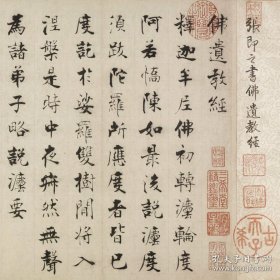 張即之書佛遺教經
佛遺教經
釋迦牟尼佛初轉灋輪度
阿若憍陳如最後説灋度
須跋陀羅所應度者皆已
度訖於娑羅雙樹間將入
涅槃是時中夜寂然無聲
爲諸弟子略説灋要